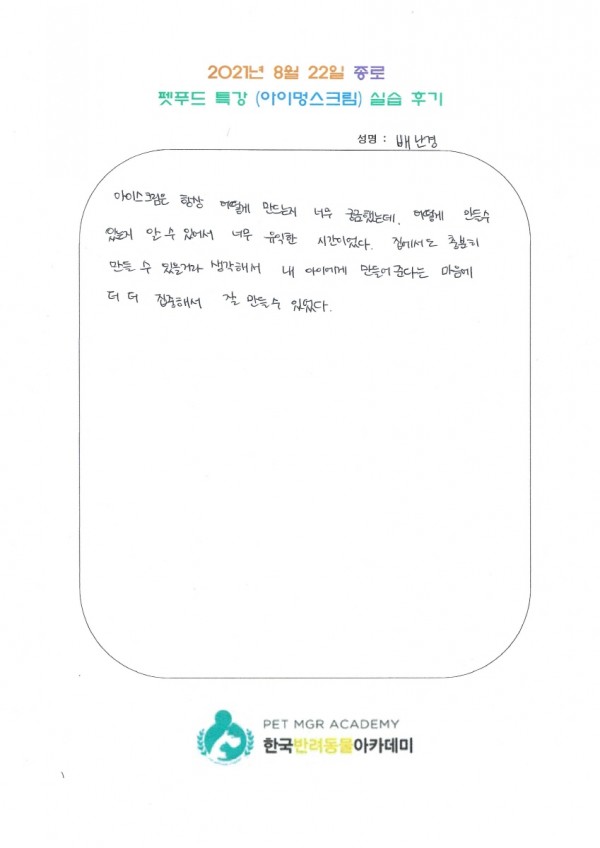 2021년 8월 22일 종로
펫푸드 특강 (아이멍스크림) 실습 후기
성명 : 배난경
아이스크림은 항상 어떻게 만드는지 너무 궁금했는데, 어떻게 만들수
있는지 알 수 있어서 너무 유익한 시간이었다. 집에서도 충분히
만들 수 있을거라 생각해서 내 아이에게 만들어 준다는 마음에
더 더 집중해서 잘 만들수 있었다.
PET MGR ACADEMY
한국반려동물아카데미